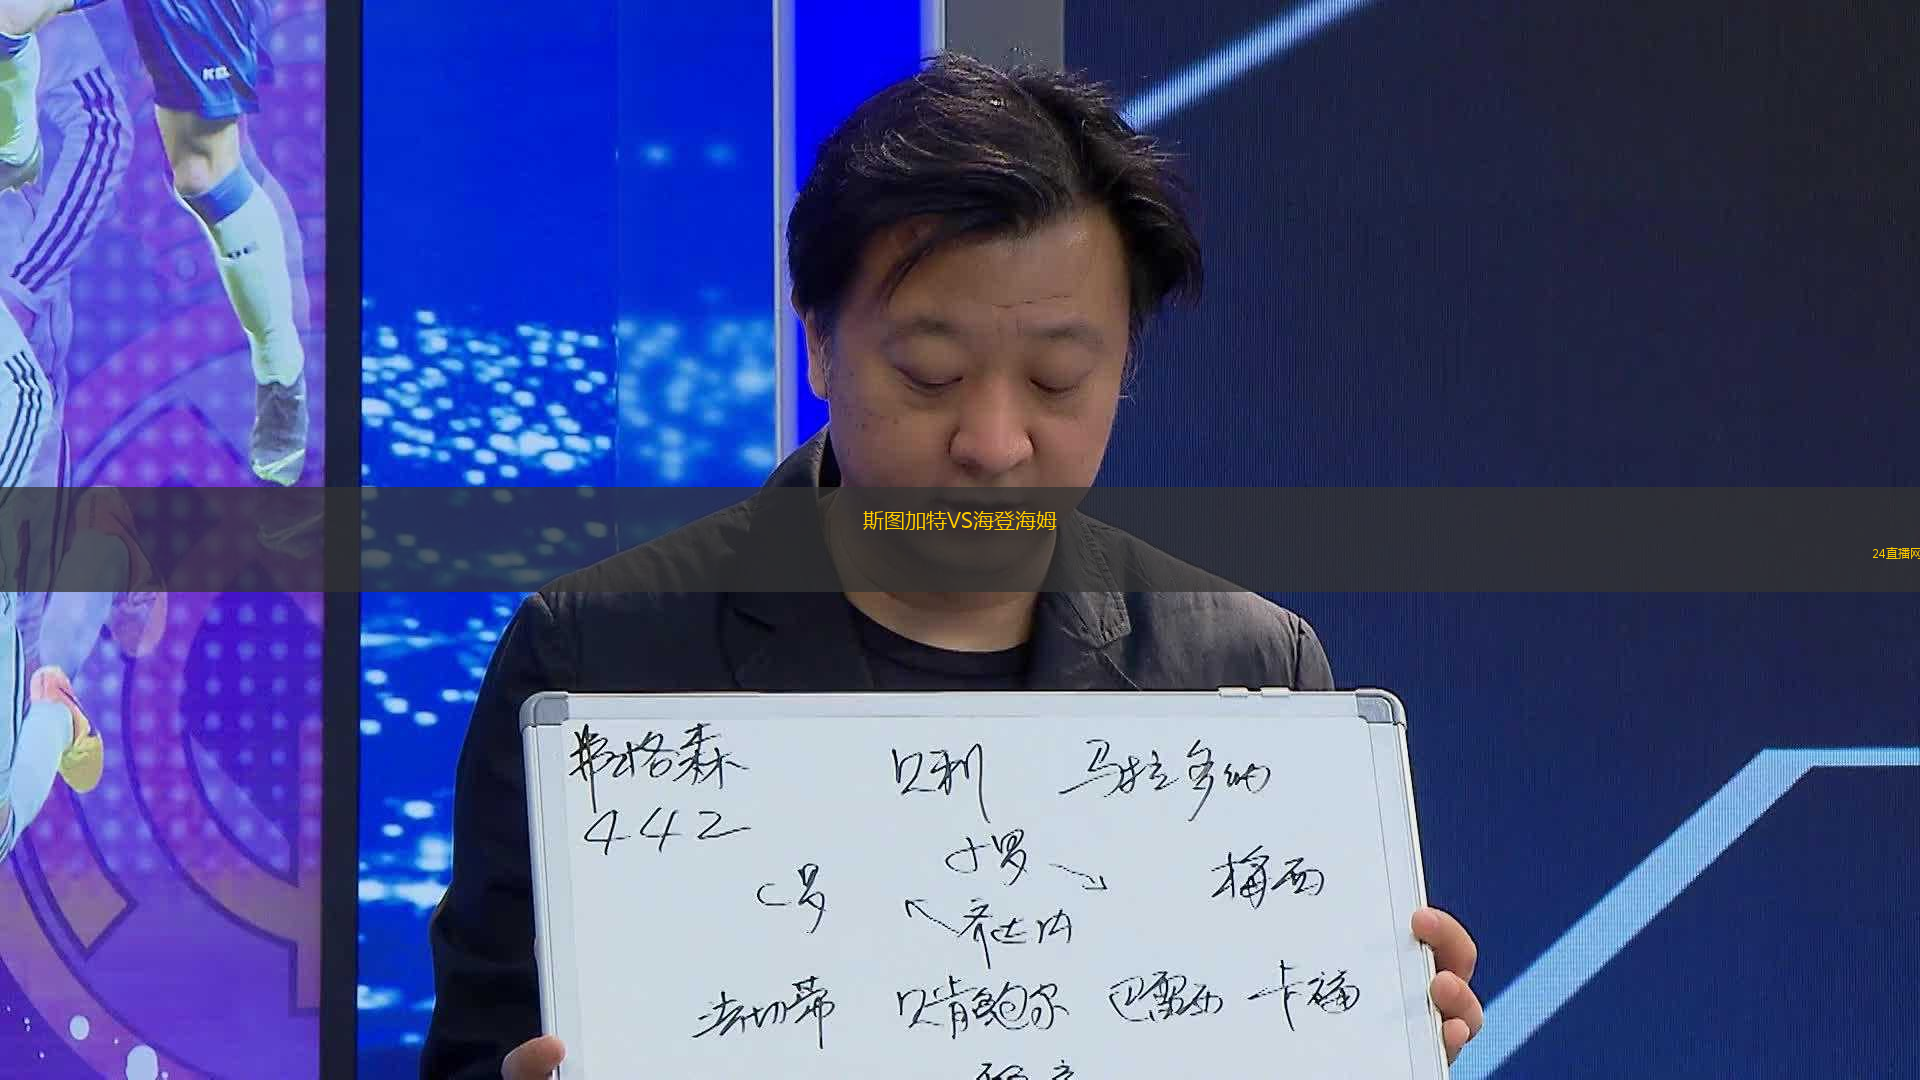 斯图加特VS海登海姆
24直播网
弗格森 贝利 马拉多纳
442
小罗
C罗 梅西
齐达内
法切蒂 贝肯鲍尔 巴雷西 卡福